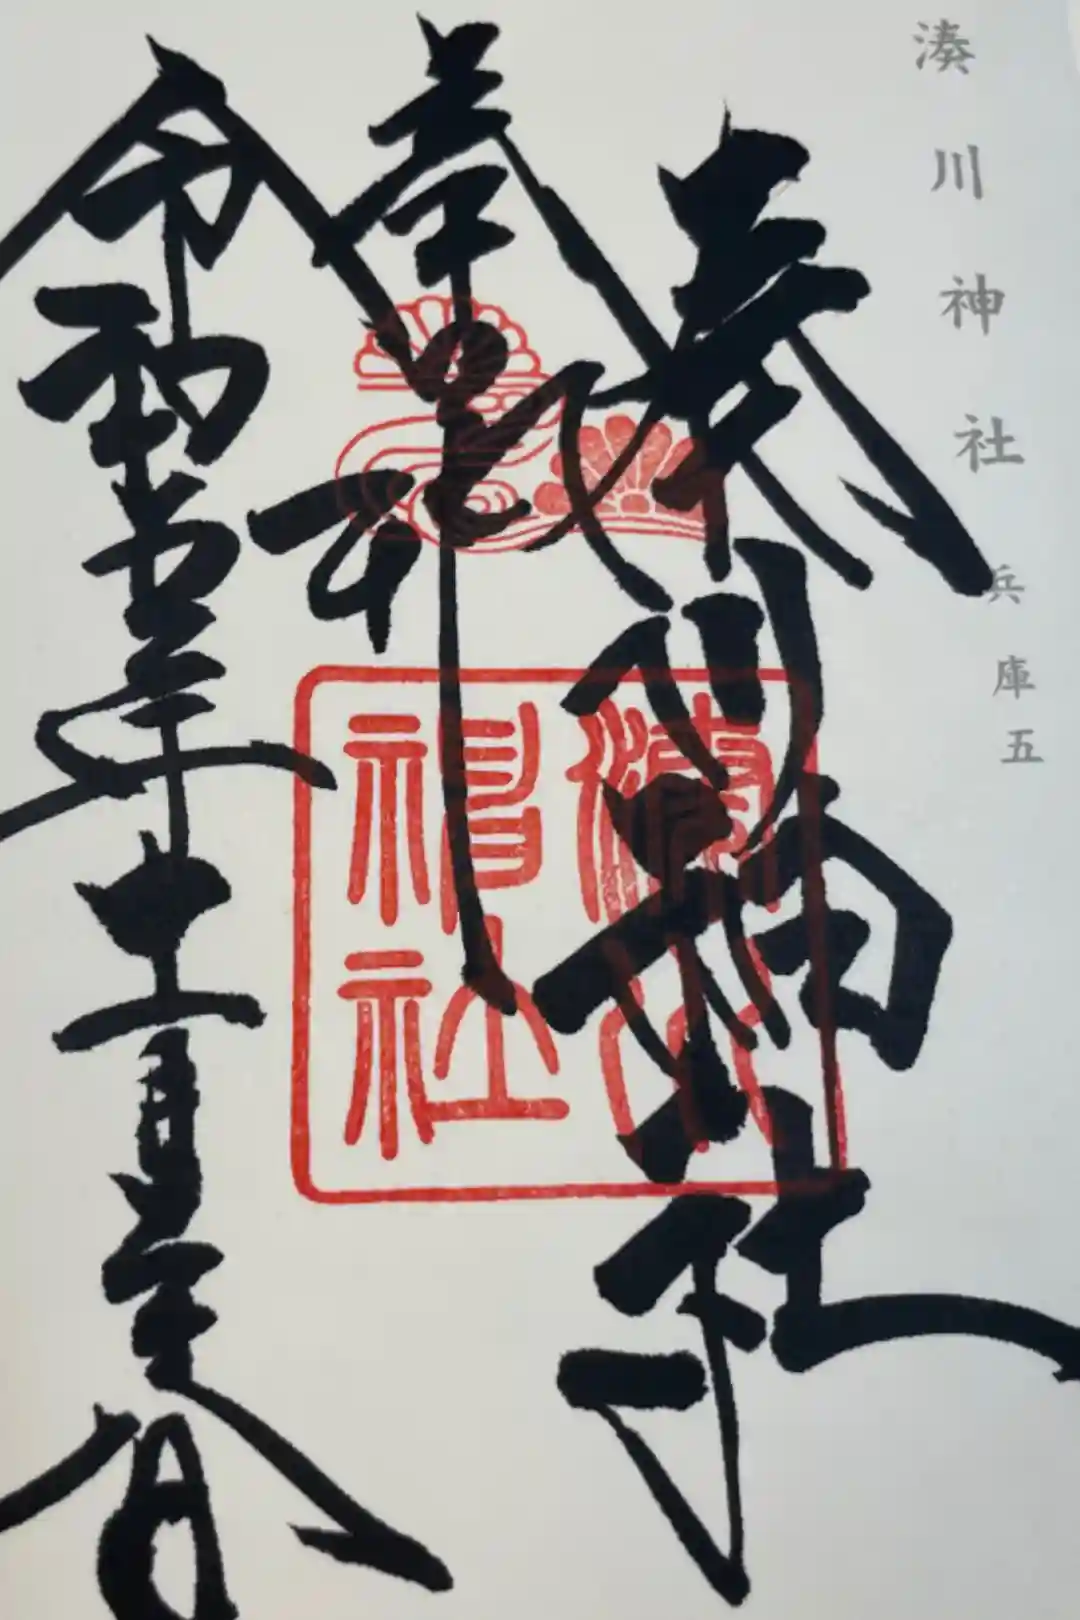 湊川神社 兵庫五
湊川神社
奉拝
令和
年十
月
日
湊川
神社